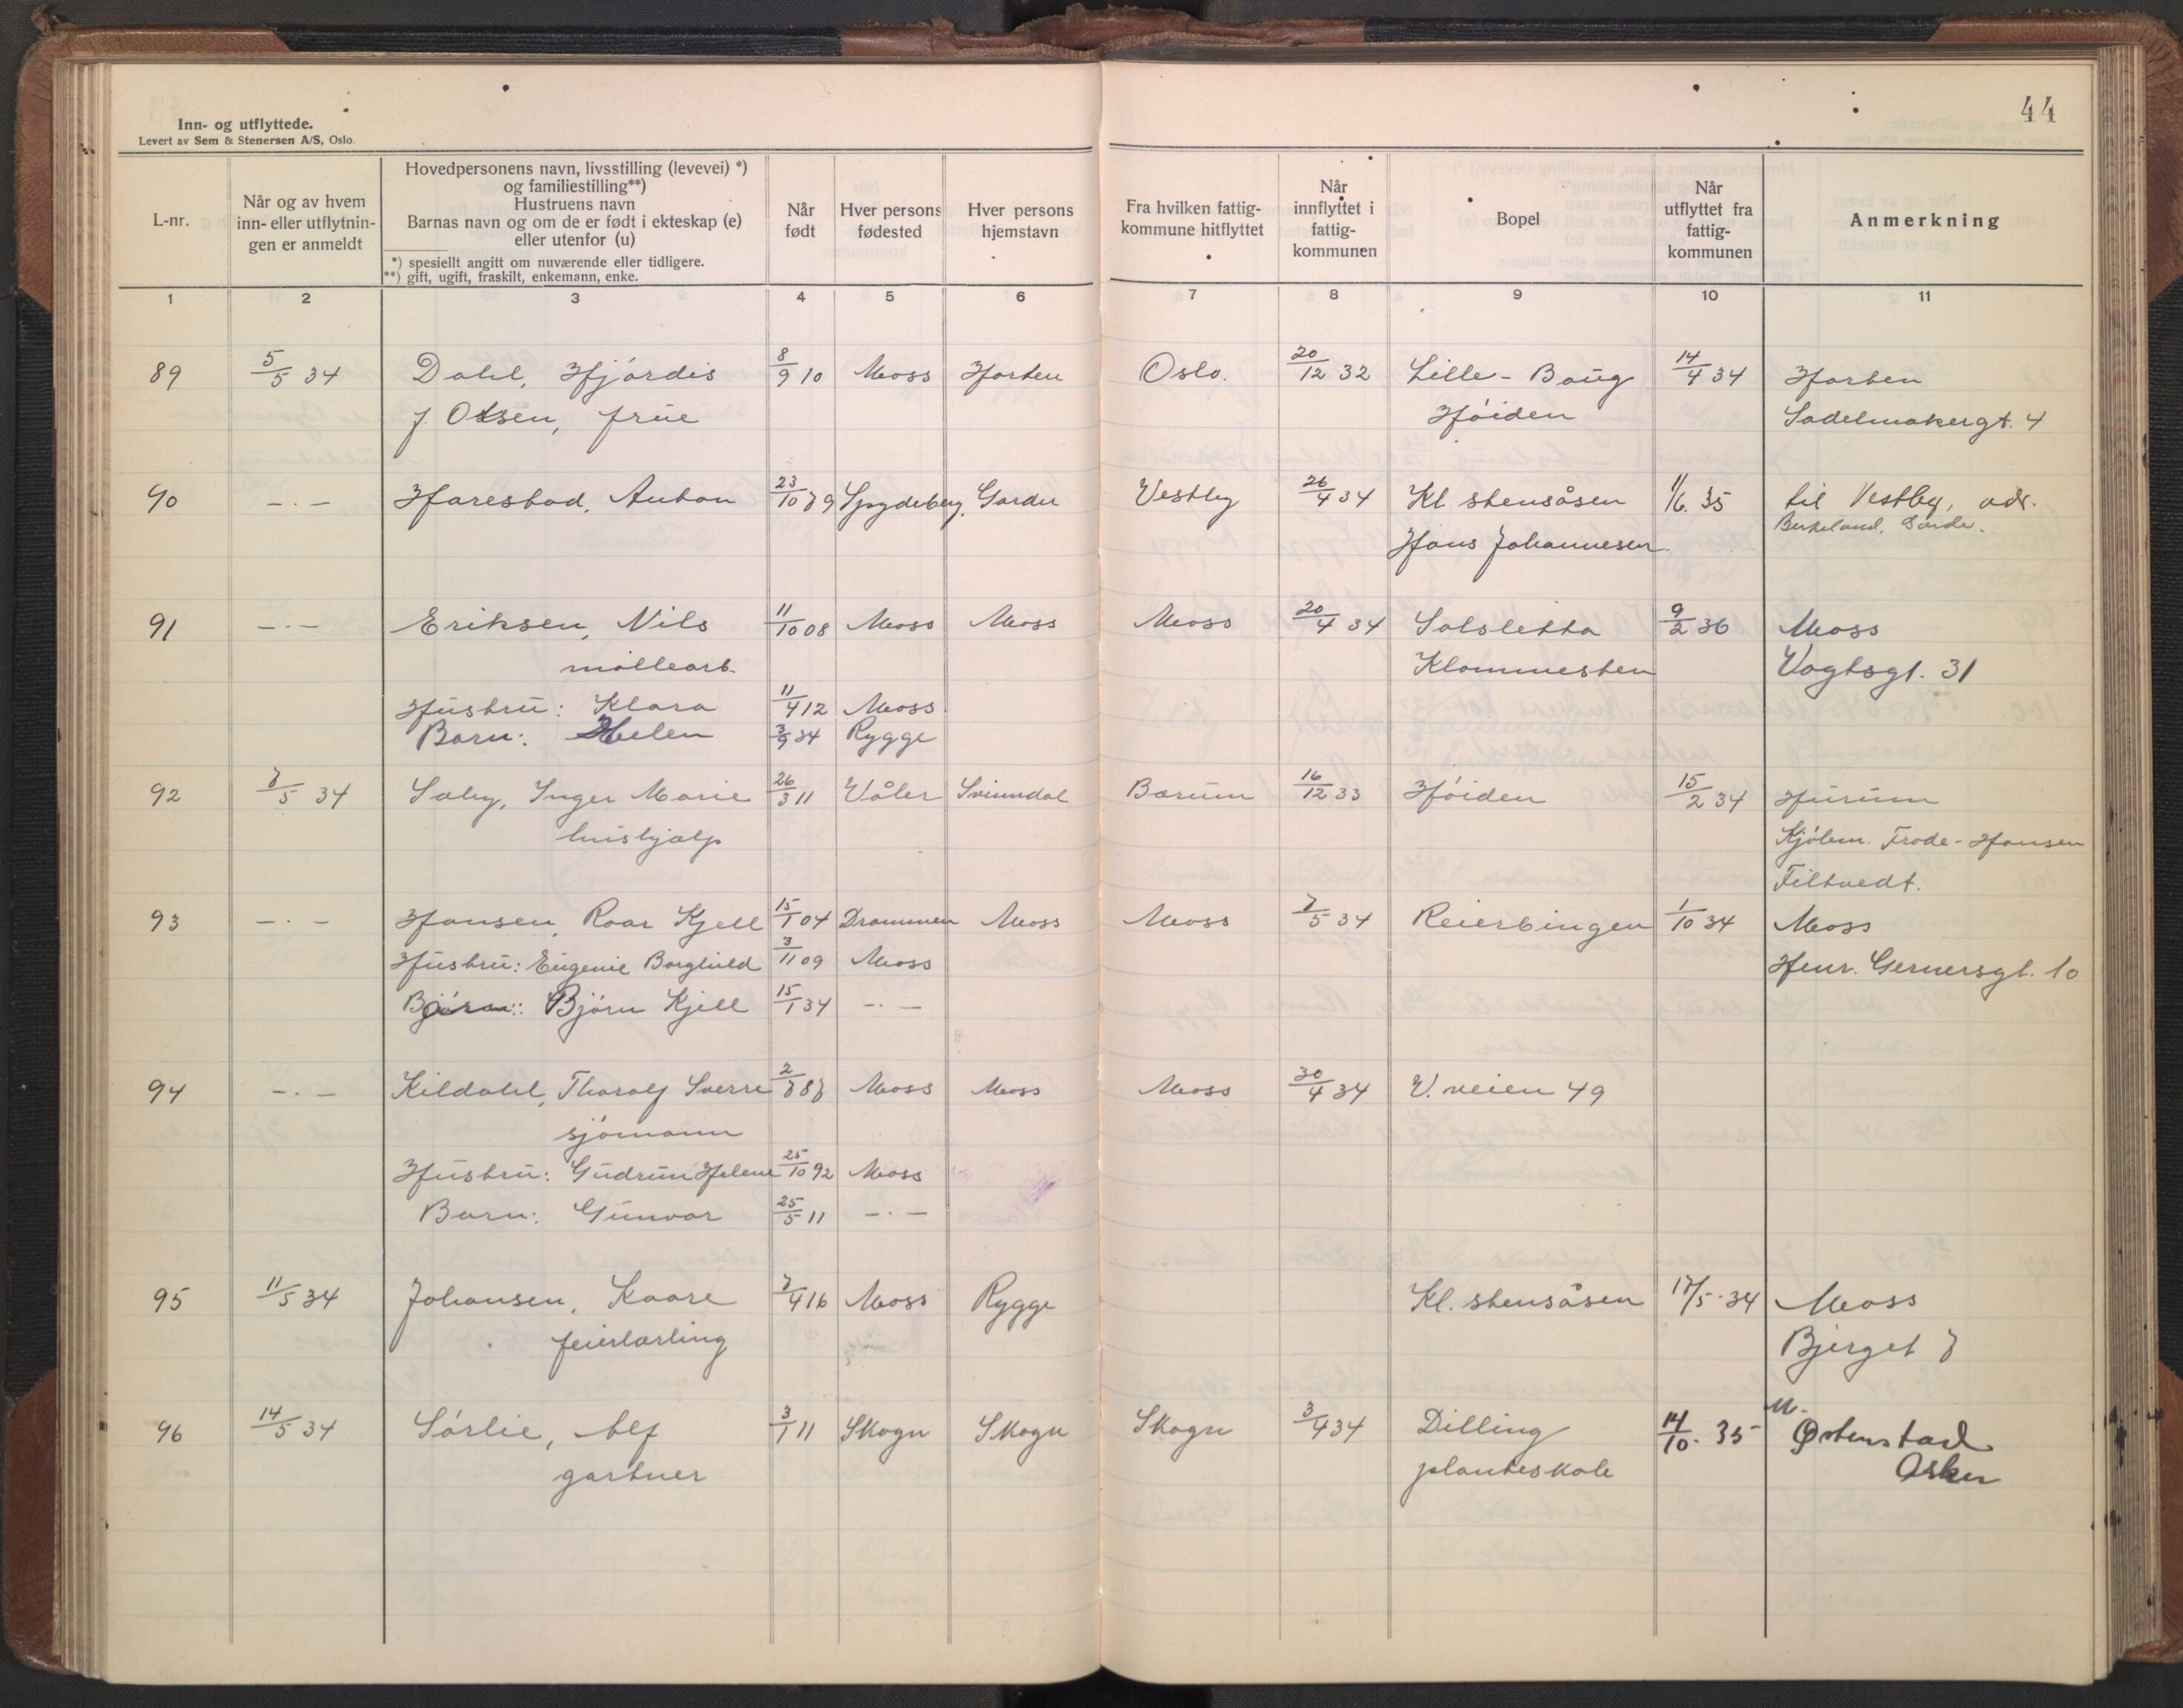 44
Inn- og utflyttede.
Levert av Sem & Stenersen A/S, Oslo.
L-nr.
Når og av hvem inn- eller utflytnin-gen er anmeldt
Hovedpersonens navn, livsstilling (levevei) *)
og familiestilling**)
Hustruens navn
Barnas navn og om de er født i ekteskap (e)
eller utenfor (u)
*) spesiellt angitt om nuværende eller tidligere.
**) gift, ugift, fraskilt, enkemann, enke.
Når født
Hver persons fødested
Hver persons hjemstavn
Fra hvilken fattig-kommune hitflyttet
Når innflyttet i fattig-kommunen
Bopel
Når utflyttet fra fattig-kommunen
Anmerkning
1 2 3 4 5 6 7 8 9 10 11
89 5/5 34 Dahl, Hjørdis 8/9 10 Moss Horten Oslo. 20/12 32 Lille-Baug 14/4 34 Horten
f. Olsen, frue Høiden Sadelmakergt. 4
90 -.- Harestad, Anton 23/10 79 Spydeberg, Garder Vestby 26/4 34 Kl stensåsen 11/6. 35 til Vestby, adr.
Hans Johannesen Birkeland, Garde.
91 -.- Eriksen, Nils 11/10 08 Moss Moss Moss 20/4 34 Solsletta 9/2 36 Moss
møllearb. Klommesten Vogtsgt. 31
Hustru: Klara 11/4 12 Moss
Barn: Helen 3/9 34 Rygge
92 7/5 34 Sæby, Inger Marie 26/3 11 Våler Svinndal Bærum 16/12 33 Høiden 15/2 34 Hurum
hushjælp Kjølem. Frode-Hansen
Filtvedt.
93 -.- Hansen, Roar Kjell 15/1 04 Drammen Moss Moss 7/5 34 Reierbingen 1/10 34 Moss
Hustru: Eugenie Borghild 3/11 09 Moss Henr. Gernersgt. 10
Barn: Bjørn Kjell 15/1 34 -.-
94 -.- Kildahl, Thoralf Sverre 2/7 87 Moss Moss Moss 30/4 34 V. veien 49
sjømann
Hustru: Gudrun Helene 25/10 92 Moss
Barn: Gunvor 25/5 11 -.-
95 11/5 34 Johansen, Kaare 7/4 16 Moss Rygge Kl. stensåsen 17/5. 34 Moss
feierlærling Bjerget 7
96 14/5 34 Sørlie, Alf 3/1 11 Skogn Skogn Skogn 3/4 34 Dilling 14/10. 35 Østenstad
gartner planteskole Asker